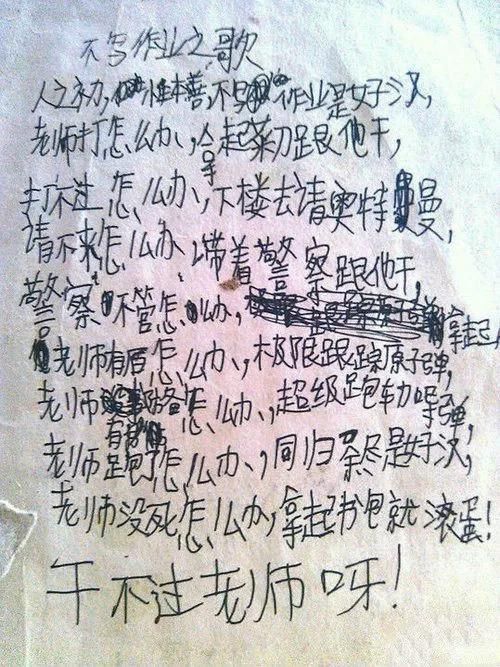 不写作业之歌
人之初,性本善,不写作业是好汉,
老师打怎么办,拿起菜刀跟他干,
打不过怎么办,下楼去请奥特曼,
请不来怎么办,带着警察跟他干,
警察不管怎么办,拿起
老师有盾怎么办,极限跟踪原子弹,
老师有 怎么办,超级跑车力 弹,
老师跑了怎么办,同归于尽是好汉,
老师没死怎么办,拿起书包就滚蛋!
干不过老师呀!